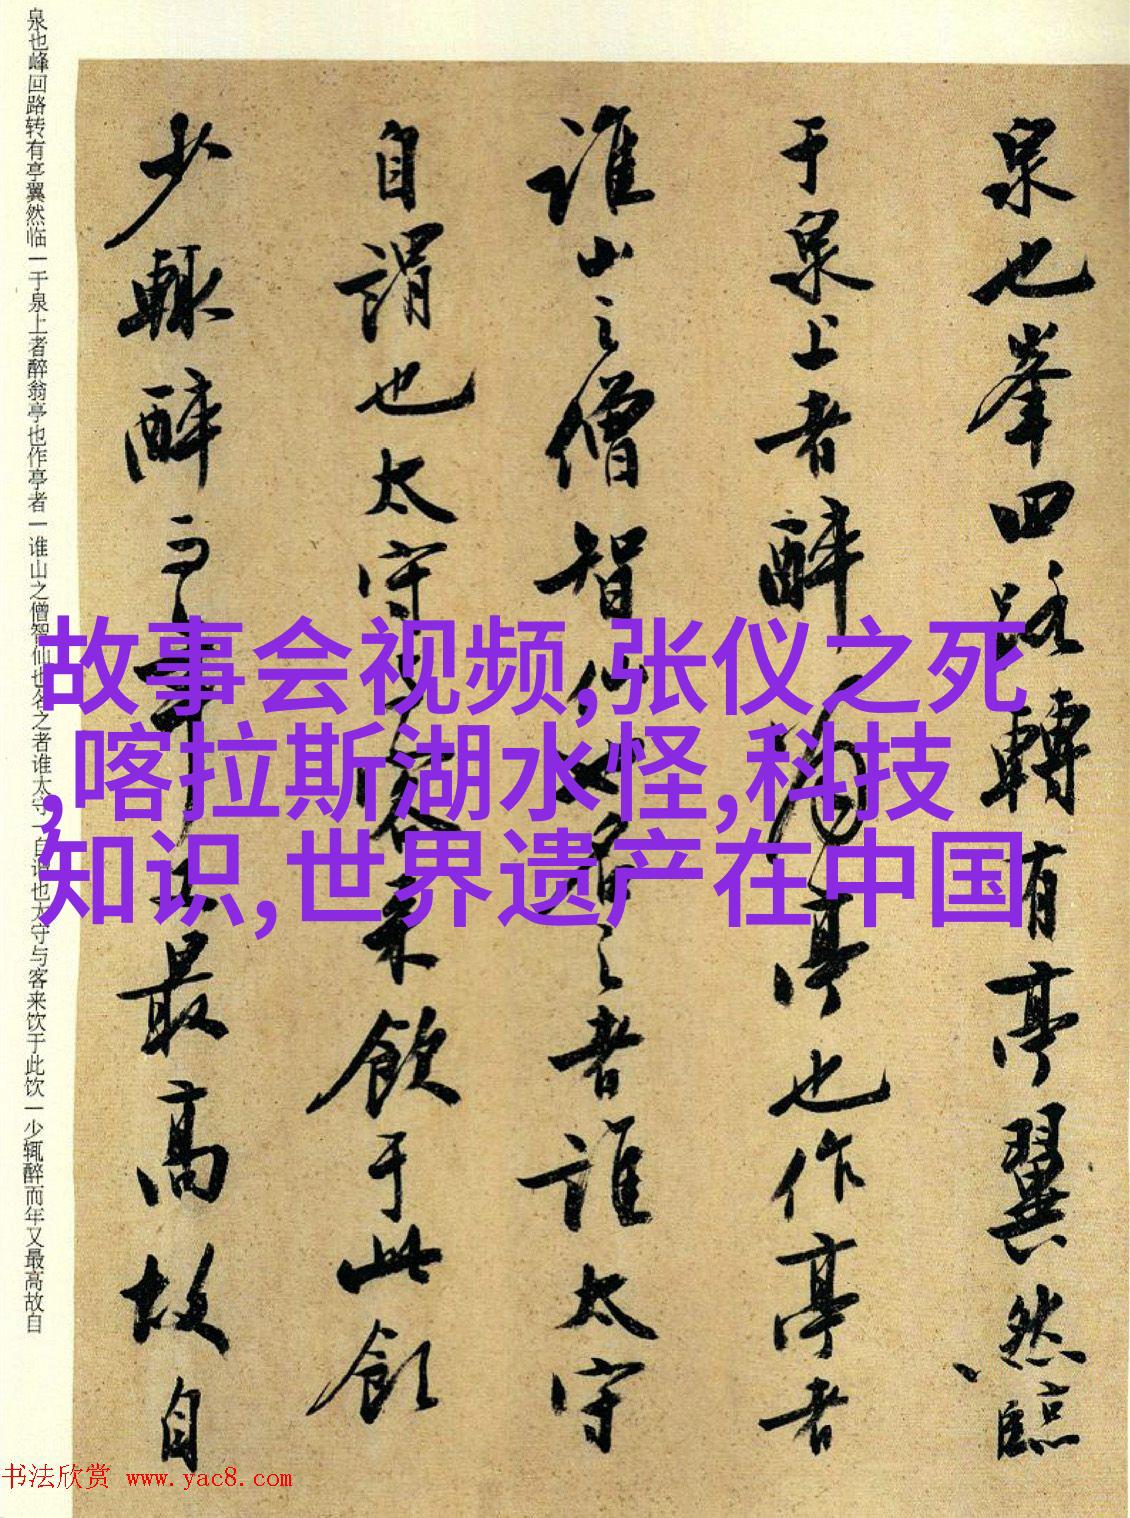 泉也峰回路转有亭翼然临一于泉上者醉翁亭也作亭者一谁山之僧智仙也名之者谁太守一自谓也太守与客来饮于此饮一少辄醉而年又最高故自
泉也峯回路轉有亭翼然臨
于泉上者醉翁亭也作亭者
誰山之僧智仙也名之者誰太守
自謂也太守与客来飲于此飲
少輒醉而年又最高故自
故事会视频,张仪之死
,喀拉斯湖水怪,科技
知识,世界遗产在中国
书法欣赏 www.yac8.com